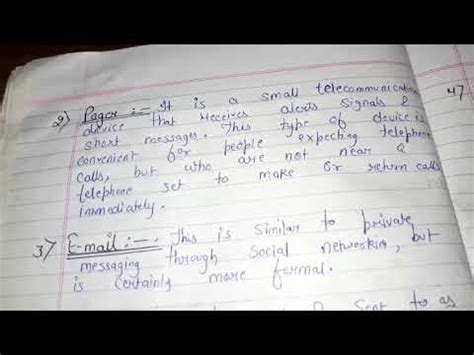 2) Pager :- It is a small telecommunication
device that receives alerts signals &
short messages. This type of device is
convenient for people expecting telephone
calls, but who are not near a
telephone set to make or return calls
immediately.
3) E-mail :-. This is similar to private
messaging through social networkin, but
is certainly more formal.
sent to as
4)